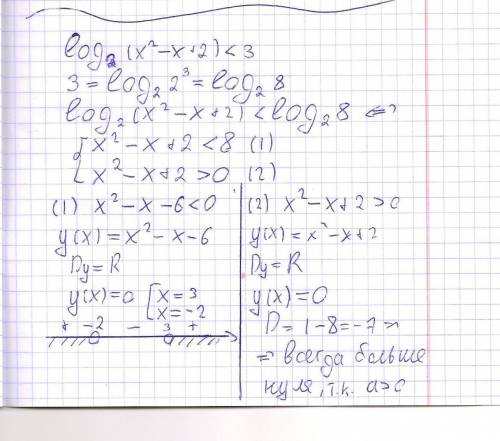 log₂ (x²-x+2) < 3
3 = log₂ 2³ = log₂ 8
log₂ (x²-x+2) < log₂ 8 <=>
{ x²-x+2 < 8 (1)
x²-x+2 > 0 (2)
(1) x²-x-6 < 0
y(x) = x²-x-6
Dy = R
y(x) = 0 [ x = 3
x = -2
+ -2 - 3 +
(2) x²-x+2 > 0
y(x) = x²-x+2
Dy = R
y(x) = 0
D = 1-8 = -7 =>
=> всегда больше
нуля, т.к. a>0